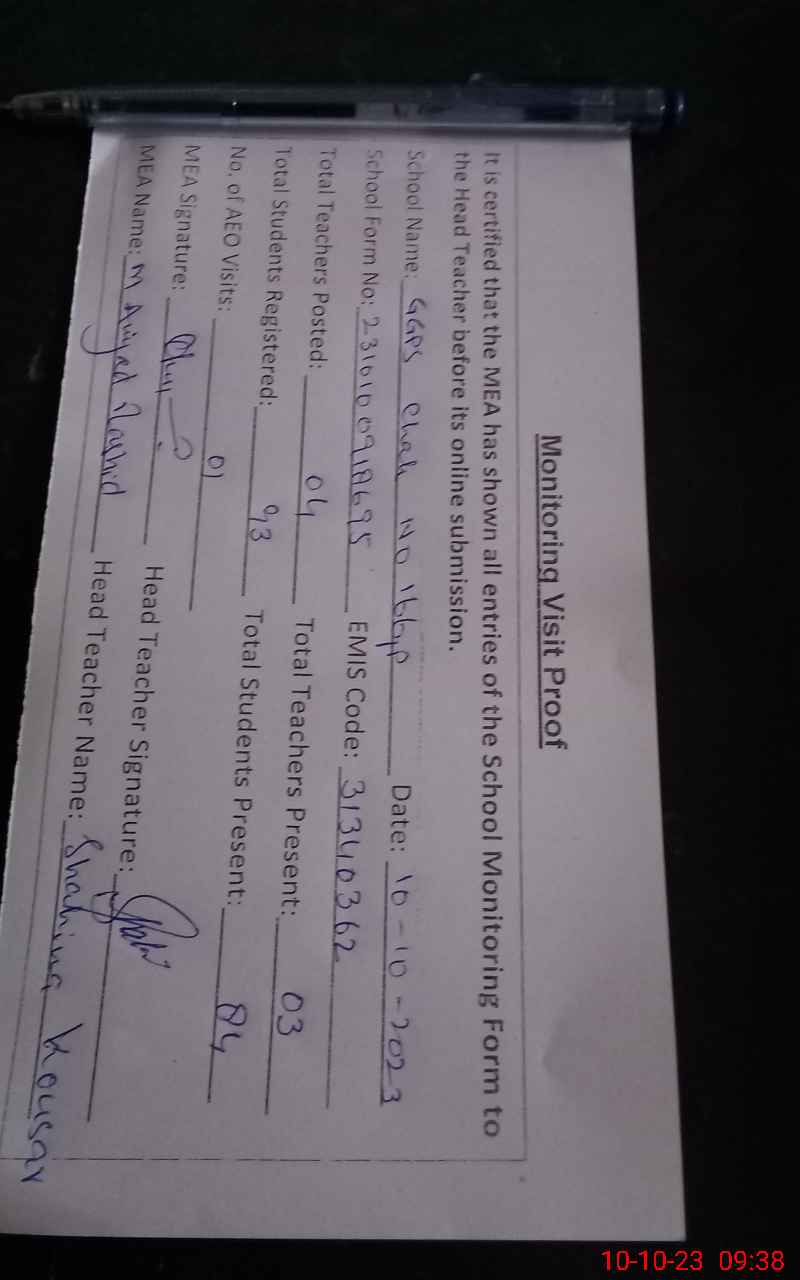 Monitoring Visit Proof
It is certified that the MEA has shown all entries of the School Monitoring Form to
the Head Teacher before its online submission.
School Name: GGPS Chak NO 166/P Date: 10-10-2023
School Form No: EMIS Code: 31340362
Total Teachers Posted: 04 Total Teachers Present: 03
Total Students Registered: 93 Total Students Present: 84
No. of AEO Visits: 01
MEA Signature: Head Teacher Signature:
MEA Name: M Rashid Head Teacher Name: Shahina Kousar
10-10-23 09:38